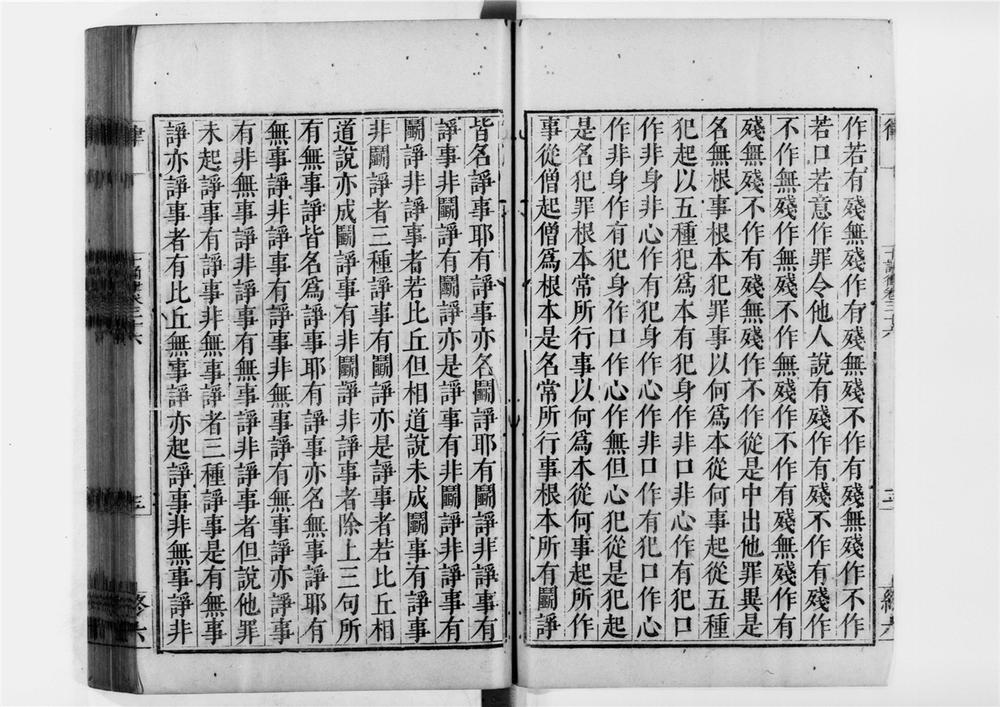 作若有殘無殘作有殘無殘不作有殘無殘作不作
若口若意作罪令他人說有殘作有殘不作有殘作
不作無殘作無殘不作無殘作不作有殘無殘作有
殘無殘不作有殘無殘作不作從是中出他罪異是
名無根事根本犯罪事以何爲本從何事起從五種
犯起以五種犯爲本有犯身作非口非心作有犯口
作非身非心作有犯身作心作非口作有犯口作心
作非身作有犯身作口作心作無但心犯從是犯起
是名犯罪根本常所行事以何爲本從何事起所作
事從僧起僧爲根本是名常所行事根本所有鬭諍
皆名諍事耶有諍事亦名鬭諍耶有鬭諍非諍事有
諍事非鬭諍有鬭諍亦是諍事有非鬭諍非諍事有
鬭諍非諍事者若比丘但相道說未成鬭事有諍事
非鬭諍者三種諍事有鬭諍亦是諍事者若比丘相
道說亦成鬭諍事有非鬭諍非諍事者除上三句所
有無事諍皆名爲諍事耶有諍事亦名無事諍耶有
無事諍非諍事有諍事非無事諍有無事諍亦諍事
有非無事諍非諍事有無事諍非諍事者但說他罪
未起諍事有諍事非無事諍者三種諍事是有無事
諍亦諍事者有比丘無事諍亦起諍事非無事諍非